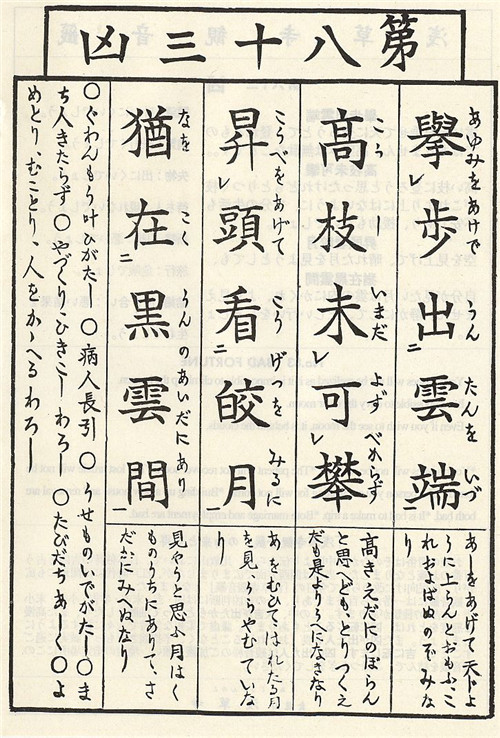 第八十三凶
擧レ歩出二雲端
あゆみをあげて うんたんを いづ
あしをあげて天上よ
うにいらんとおもふ、こ
れおよばぬのぞみな
り
高枝未レ可レ攀
こうしいまだ よず べからず
高きえだにのぼらん
と思へども、とりつくえ
だも是より
昇レ頭看二皎月
こうべをあげて こうげつを みる
あをむひてはれたる月
を見
り
猶在二黒雲間一
なを こくうんのあいだにあり
見やうと思ふ月はく
ものうちにありて、さ
だかにみへぬなり
○ぐわんもう叶ひがたし ○病人長引 ○うせものいでがたし ○ま
ち人きたらず ○やづくりひきこしわろし ○たびだちあし ○よ
めとり、むことり、人をかゝへるわろし